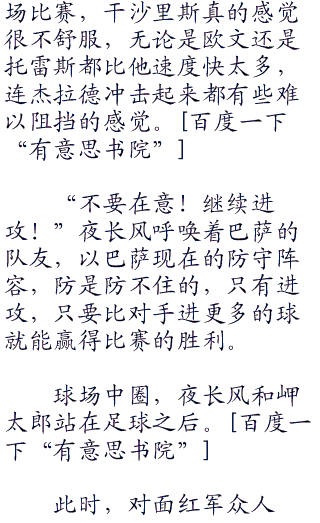 场比赛，干沙里斯真的感觉
很不舒服，无论是欧文还是
托雷斯都比他速度快太多，
连杰拉德冲击起来都有些难
以阻挡的感觉。[百度一下
“有意思书院”]
“不要在意！继续进
攻！”夜长风呼唤着巴萨的
队友，以巴萨现在的防守阵
容，防是防不住的，只有进
攻，只要比对手进更多的球
就能赢得比赛的胜利。
球场中圈，夜长风和岬
太郎站在足球之后。[百度一
下“有意思书院”]
此时，对面红军众人